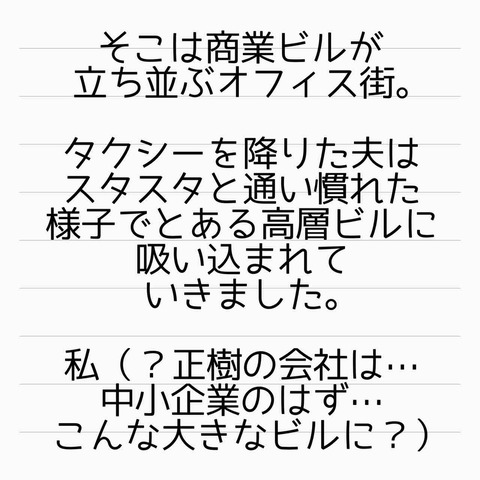 そこは商業ビルが
立ち並ぶオフィス街。
タクシーを降りた夫は
スタスタと通い慣れた
様子でとある高層ビルに
吸い込まれて
いきました。
私（？正樹の会社は…
中小企業のはず…
こんな大きなビルに？）